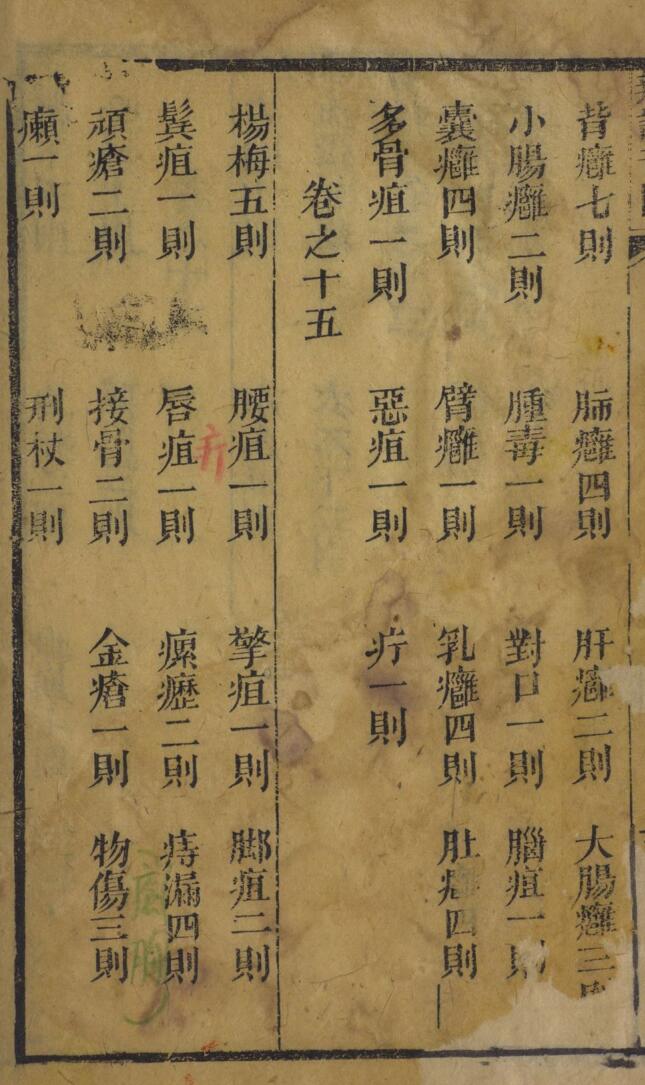 背癰七則 肺癰四則 肝癰二則 大腸癰三則
小腸癰二則 腫毒一則 對口一則 腦疽一則
囊癰四則 臂癰一則 乳癰四則 肚癰四則
多骨疽一則 惡疽一則 疔一則
卷之十五
楊梅五則 腰疽一則 擎疽一則 脚疽二則
鬂疽一則 唇疽一則 瘰癧二則 痔漏四則
頑瘡二則 接骨二則 金瘡一則 物傷三則
癩一則 刑杖一則